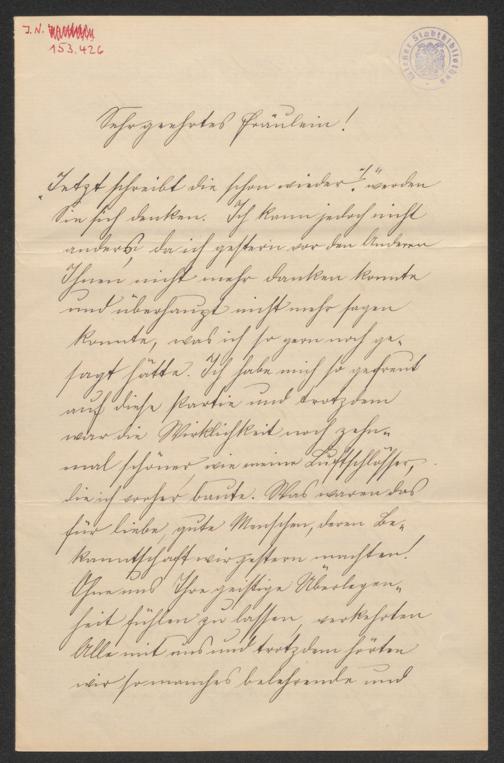 J. N.
153.426
Wiener Stadtbibliothek
Sehr geehrtes Fräulein!
„Jetzt schreibt die schon wieder!“ werden
Sie sich denken. Ich kann jedoch nicht
anders, da ich gestern vor den Anderen
Ihnen nicht mehr danken konnte
und überhaupt nicht mehr sagen
konnte, was ich so gern noch ge-
sagt hätte. Ich habe mich so gefreut
auf diese Partie und trotzdem
war die Wirklichkeit noch zehn-
mal schöner, wie meine Luftschlösser,
die ich vorher baute. Was waren das
für liebe, gute Menschen, deren Be-
kanntschaft wir gestern machten!
Ohne uns Ihre geistige Überlegen-
heit fühlen zu lassen, verkehrten
Alle mit uns und trotzdem hörten
wir so manches belehrende und